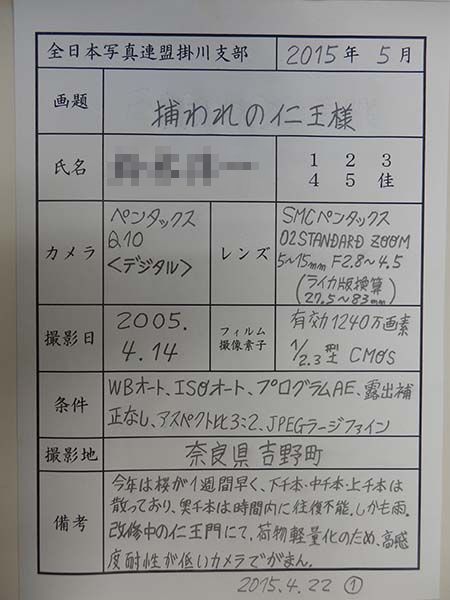 全日本写真連盟掛川支部 2015年 5月
画題 捕われの仁王様
氏名
1 2 3
4 5 佳
カメラ
ペンタックス
Q10
<デジタル>
レンズ
SMCペンタックス
02 STANDARD ZOOM
5~15mm F2.8~4.5
(ライカ版換算
27.5~83mm)
撮影日
2005.
4.14
フィルム
撮像素子
有効1240万画素
1/2.3型 CMOS
条件
WBオート、ISOオート、プログラムAE、露出補
正なし、アスペクト比3:2、JPEGラージファイン
撮影地 奈良県吉野町
備考
今年は桜が1週間早く、下千本・中千本・上千本は
散っており、奥千本は時間内に往復不能。しかも雨。
改修中の仁王門にて、荷物軽量化のため、高感
度耐性が低いカメラでがまん。
2015.4.22 ①